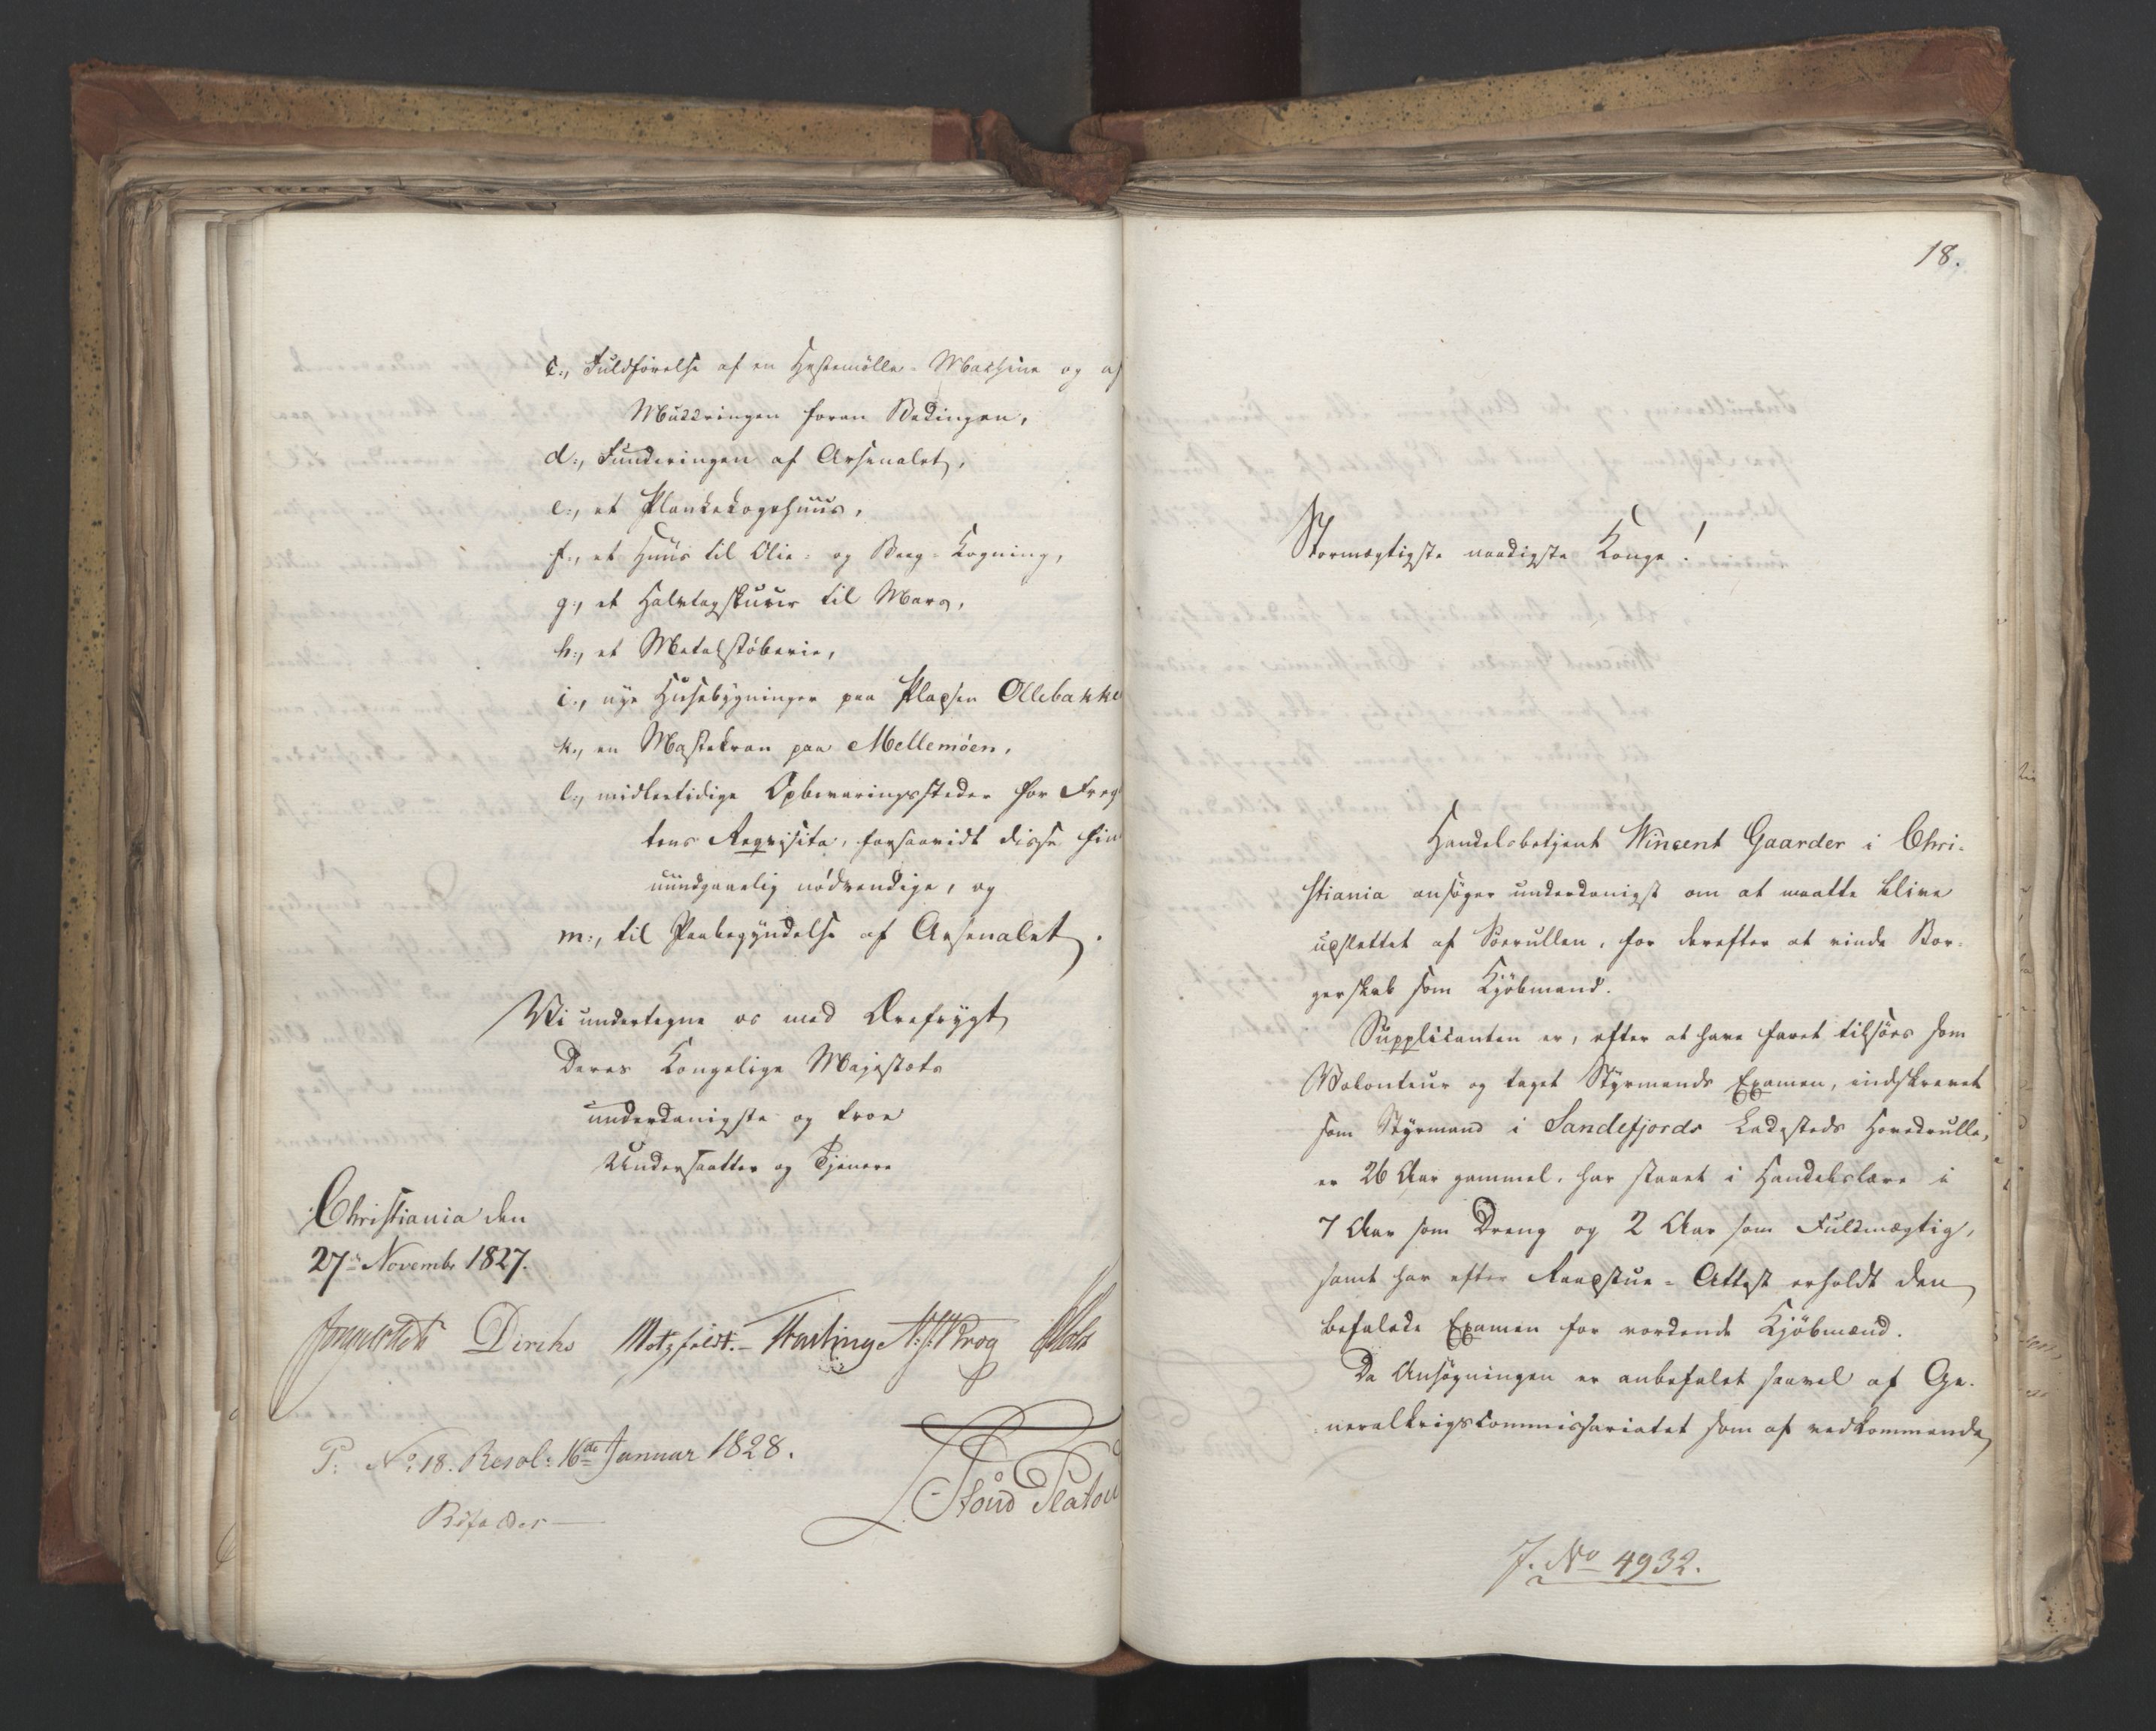 c., Fuldførelse af en Hestemølle-Machine og af
Muddringen foran Bedingen,
d., Funderingen af Arsenalet,
e., et Plankekogehuus,
f., et Huus til Olie- og Beeg-Kogning,
g., et Halvtagskuur til Mars,
h., et Metalstøberie,
i., nye Husebygninger paa Pladsen Ollebakke
k., en Mastekran paa Mellemöen,
l., midlertidige Opbevaringssteder for Freg
tens Reqvisita, forsaavidt disse
uundgaaelig nødvendige, og
m., til Paabegyndelse af Arsenalet.
Vi undertegne os med Ærefrygt
Deres Kongelige Majestæts
underdanigste og troe
Undersaatter og Tjenere
Christiania den
27de Novembr 1827.
Diriks Motzfeldt. N. J. Krog Holst
P. No 18. Resol: 16de Januar 1828.
Bifaldes
Stoud Platou
18.
Stormægtigste naadigste Konge!
Handelsbetjent Wincent Gaarder i Chri-
stiania ansøger underdanigst om at maatte blive
udslettet af Søerullen, for derefter at vinde Bor-
gerskab som Kjøbmand.
Supplicanten er, efter at have faret tilsøes som
Volonteur og taget Styrmands Examen, indskrevet
som Styrmand i Sandefjords Ladesteds Hovedrulle,
er 26 Aar gammel, har staaet i Handelslære i
7 Aar som Dreng og 2 Aar som Fuldmægtig,
samt har efter Raadstue-Attest erholdt den
befalede Examen for vordende Kjøbmænd.
Da Ansøgningen er anbefalet saavel af Ge-
neralkrigscommissariatet som af vedkommende
J. No 4932.